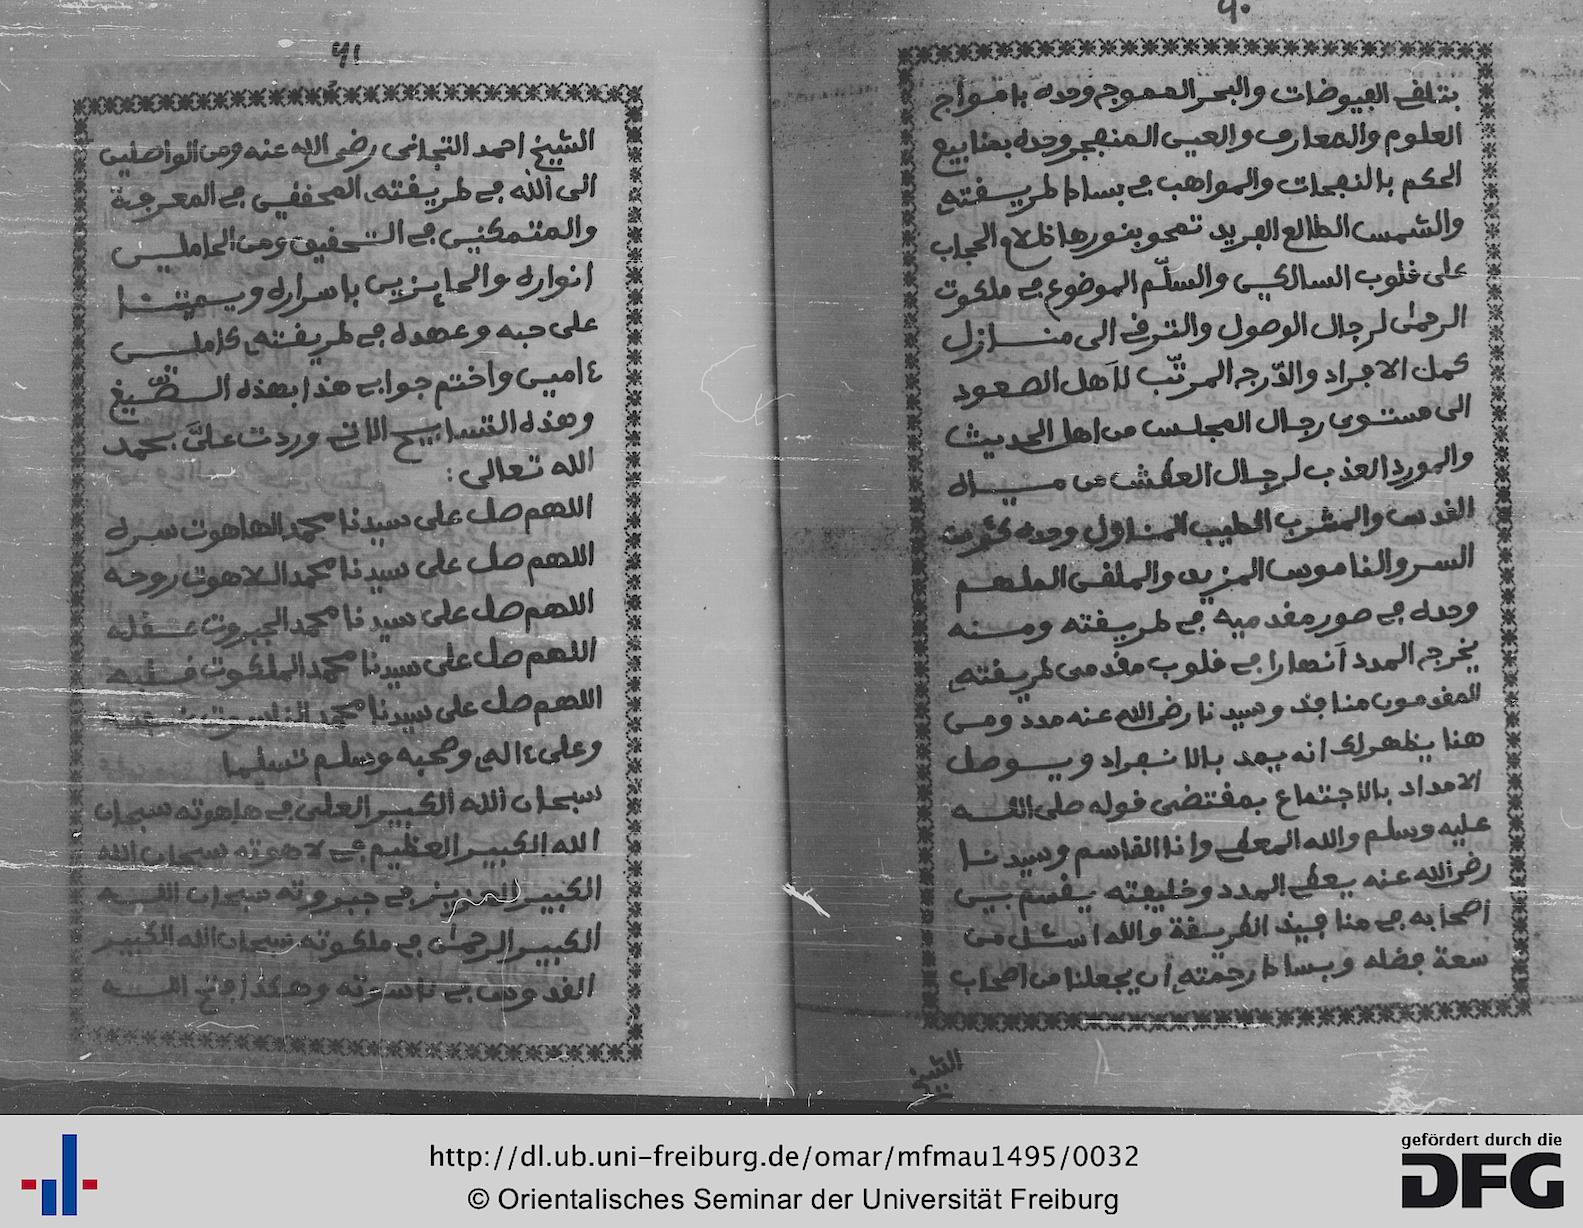 ٦٠
بتلقى الفيوضات والبحر المموج وحده بامواج
العلوم والمعارف والعين المنهجر وحده بمنابيع
الحكم بالنفحات والمواهب في بساط طريقته
والشمس الطالع الفريد تمحو بنورها ظلام الحجاب
على قلوب السالكين والسلّم الموضوع في ملكوت
الرحمن لرجال الوصول والترقى الى منازل
كمل الافراد والدّرجه المرتّب لاهل الصعود
الى مستوى رجال المجلس من اهل الحديث
والمورد العذب لرجال العطش من مياه
القدس والمشرب الطيب المناول وحده كؤوت
السر والناموس المزيد والملقى الملهم
وحده في صور مقدميه في طريقته ومنه
يخرج المدد انهارا في قلوب مقدمى طريقته
المقدمون منافذ وسيدنا رضى الله عنه مدد ومن
هنا يظهر لك انه يمد بالانفراد ويوصل
الامداد بالاجتماع بمقتضى قوله صلى الله
عليه وسلم والله المعطى وانا القاسم وسيدنا
رضى الله عنه يعطى المدد وخليفته يقسم بين
اصحابه في منافيذ الطريقة والله اسئل من
سعة فضله وبساط رحمته ان يجعلنا من اصحاب
الشيخ
٦١
الشيخ احمد التجانى رضى الله عنه ومن الواصلين
الى الله في طريقته المحققين في المعرفة
والمتمكنين في التحقيق ومن الحاملين
انواره والحايزين باسراره ويميتنا
على حبه وعهده في طريقته كاملين
ءامين واختم جوابى هذا بهذه الصيغ
وهذه التسابيح التى وردت علىّ بحمد
الله تعالى:
اللهم صل على سيدنا محمد الهاهوت سره
اللهم صل على سيدنا محمد اللاهوت روحه
اللهم صل على سيدنا محمد الجبروت عقله
اللهم صل على سيدنا محمد الملكوت قلبه
اللهم صل على سيدنا محمد الناسوت
وعلى ءاله وصحبه وسلم تسليما
سبحان الله الكبير العلى في هاهوته سبحان
الله الكبير العظيم في لاهوته سبحان الله
الكبير العزيز في جبروته سبحان الله
الكبير الرحمن في ملكوته سبحان الله الكبير
القدوس في ناسوته وهكذا فتح الله
http://dl.ub.uni-freiburg.de/omar/mfmau1495/0032
© Orientalisches Seminar der Universität Freiburg
gefördert durch die
DFG